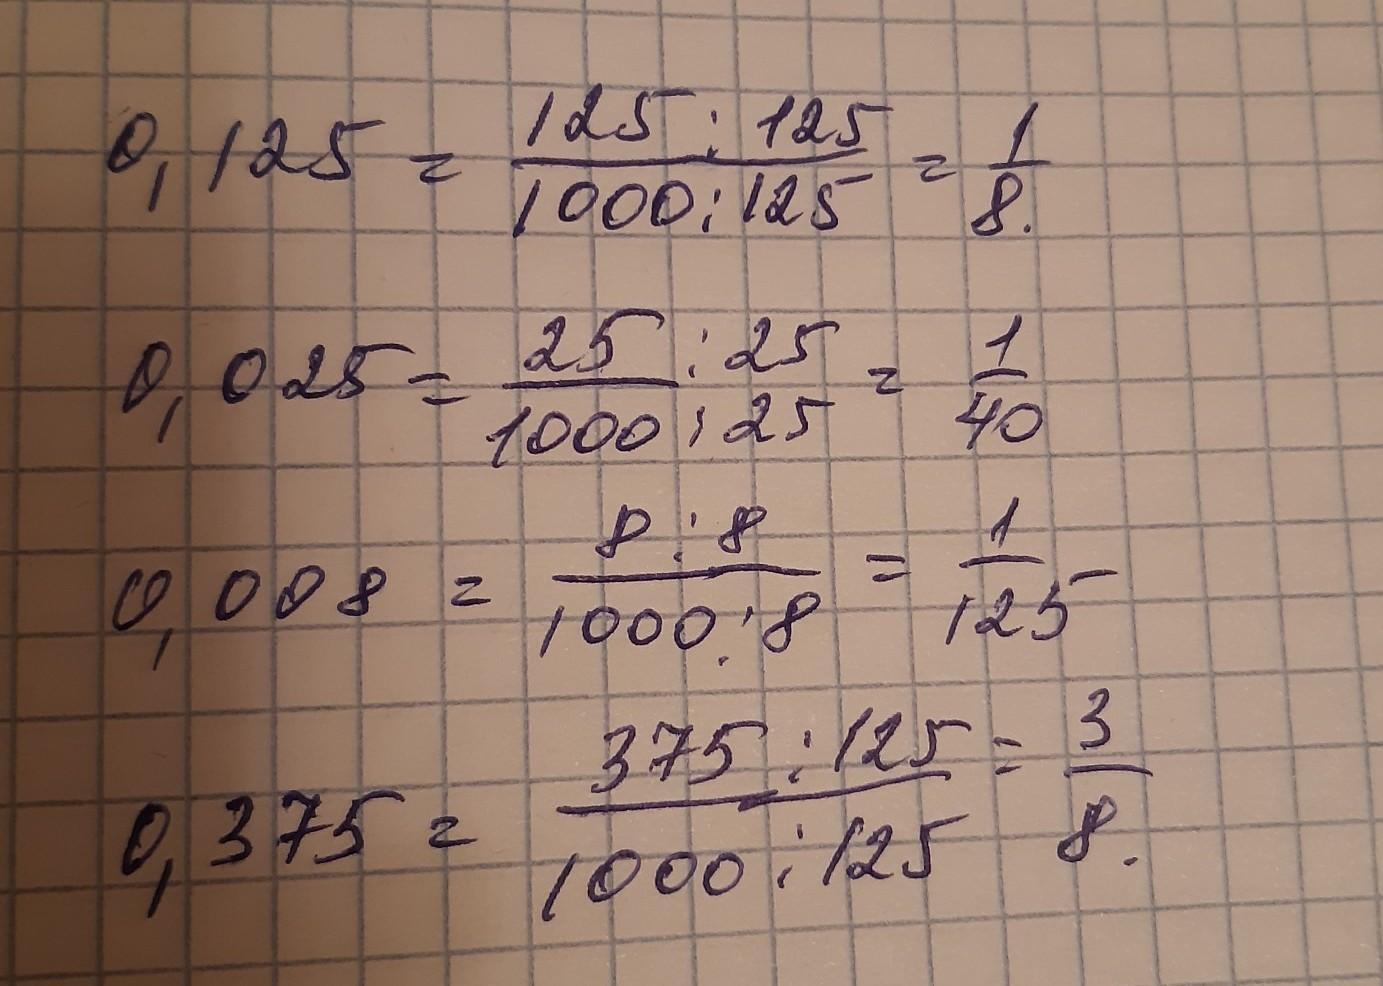 0,125 = 125 : 125 / 1000 : 125 = 1/8.
0,025 = 25 : 25 / 1000 : 25 = 1/40
0,008 = 8 : 8 / 1000 : 8 = 1/125
0,375 = 375 : 125 / 1000 : 125 = 3/8.